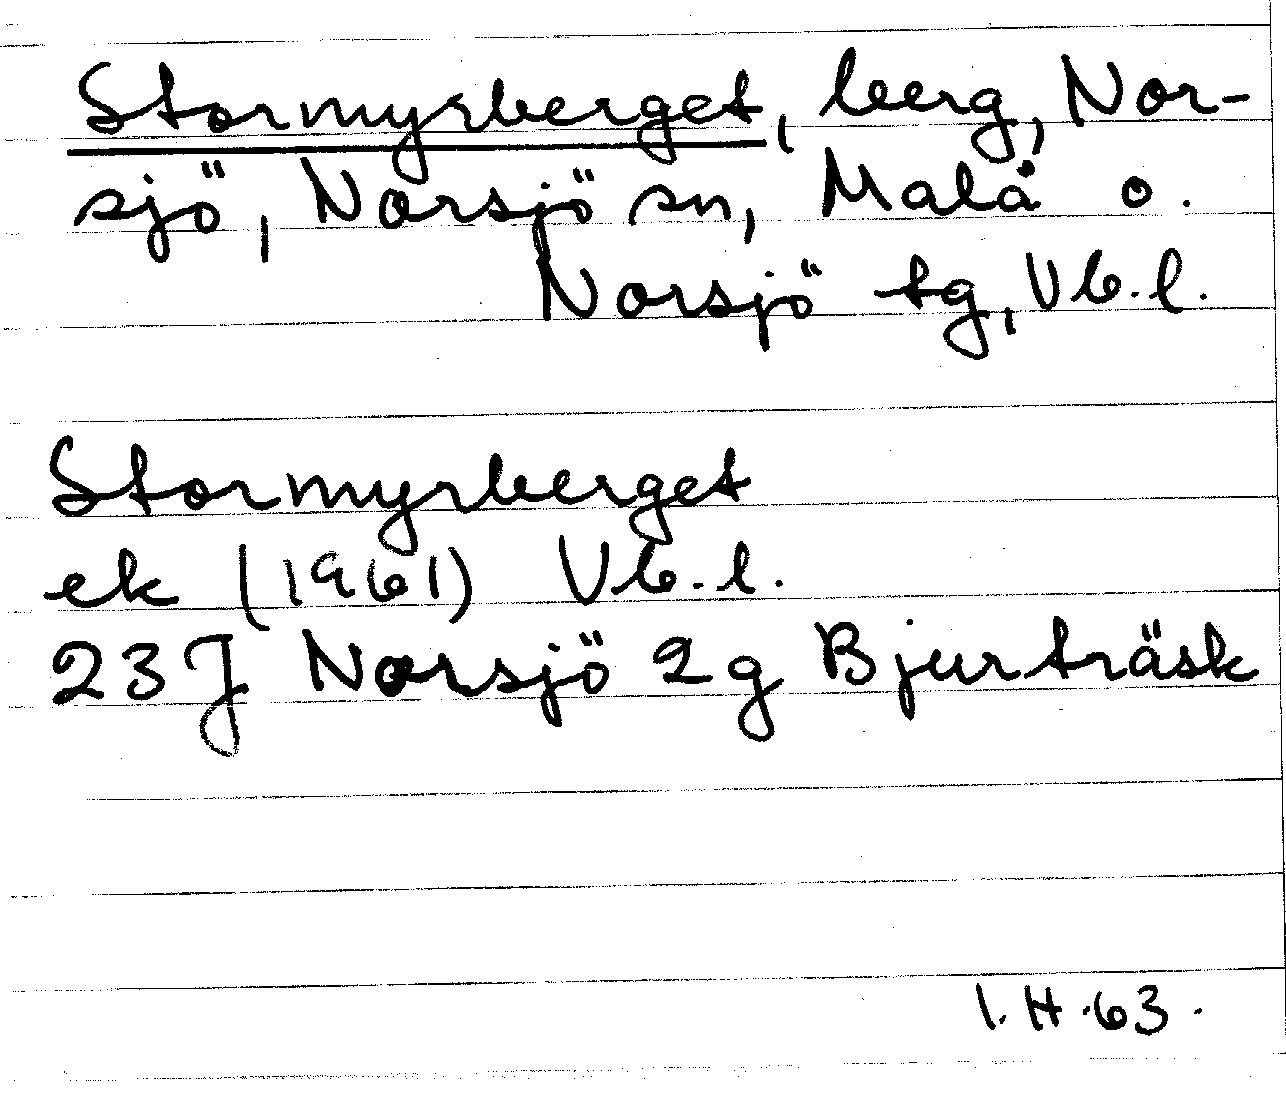 Stormyrberget, berg, Nor-
sjö, Norsjö sn, Malå o.
Norsjö tg, Vb.l.
Stormyrberget
ek (1961) Vb.l.
23J Norsjö 2g Bjurträsk
I.H.63.